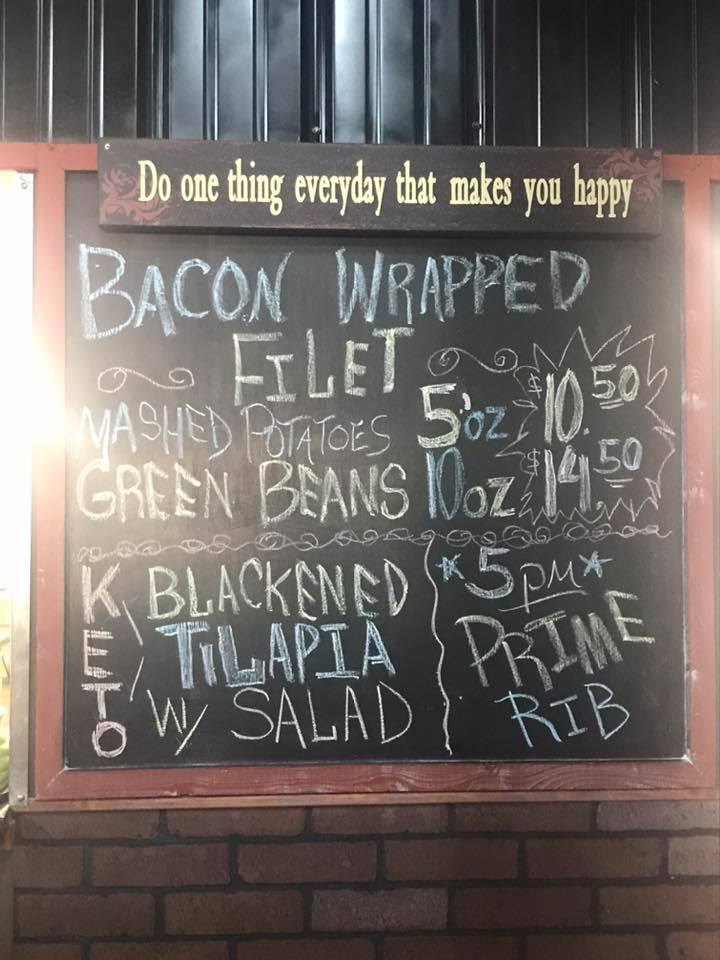 Do one thing everyday that makes you happy
BACON WRAPPED
FILET
MASHED POTATOES 5 oz $10.50
GREEN BEANS 10 oz $14.50
KETO
BLACKENED
TILAPIA
W/ SALAD
*5pm*
PRIME
RIB